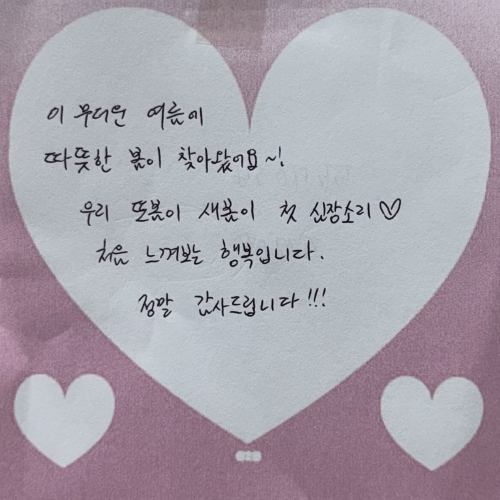 이 무더운 여름에
따뜻한 봄이 찾아왔어요~!
우리 또봄이 새봄이 첫 심장소리♡
처음 느껴보는 행복입니다.
정말 감사드립니다!!!